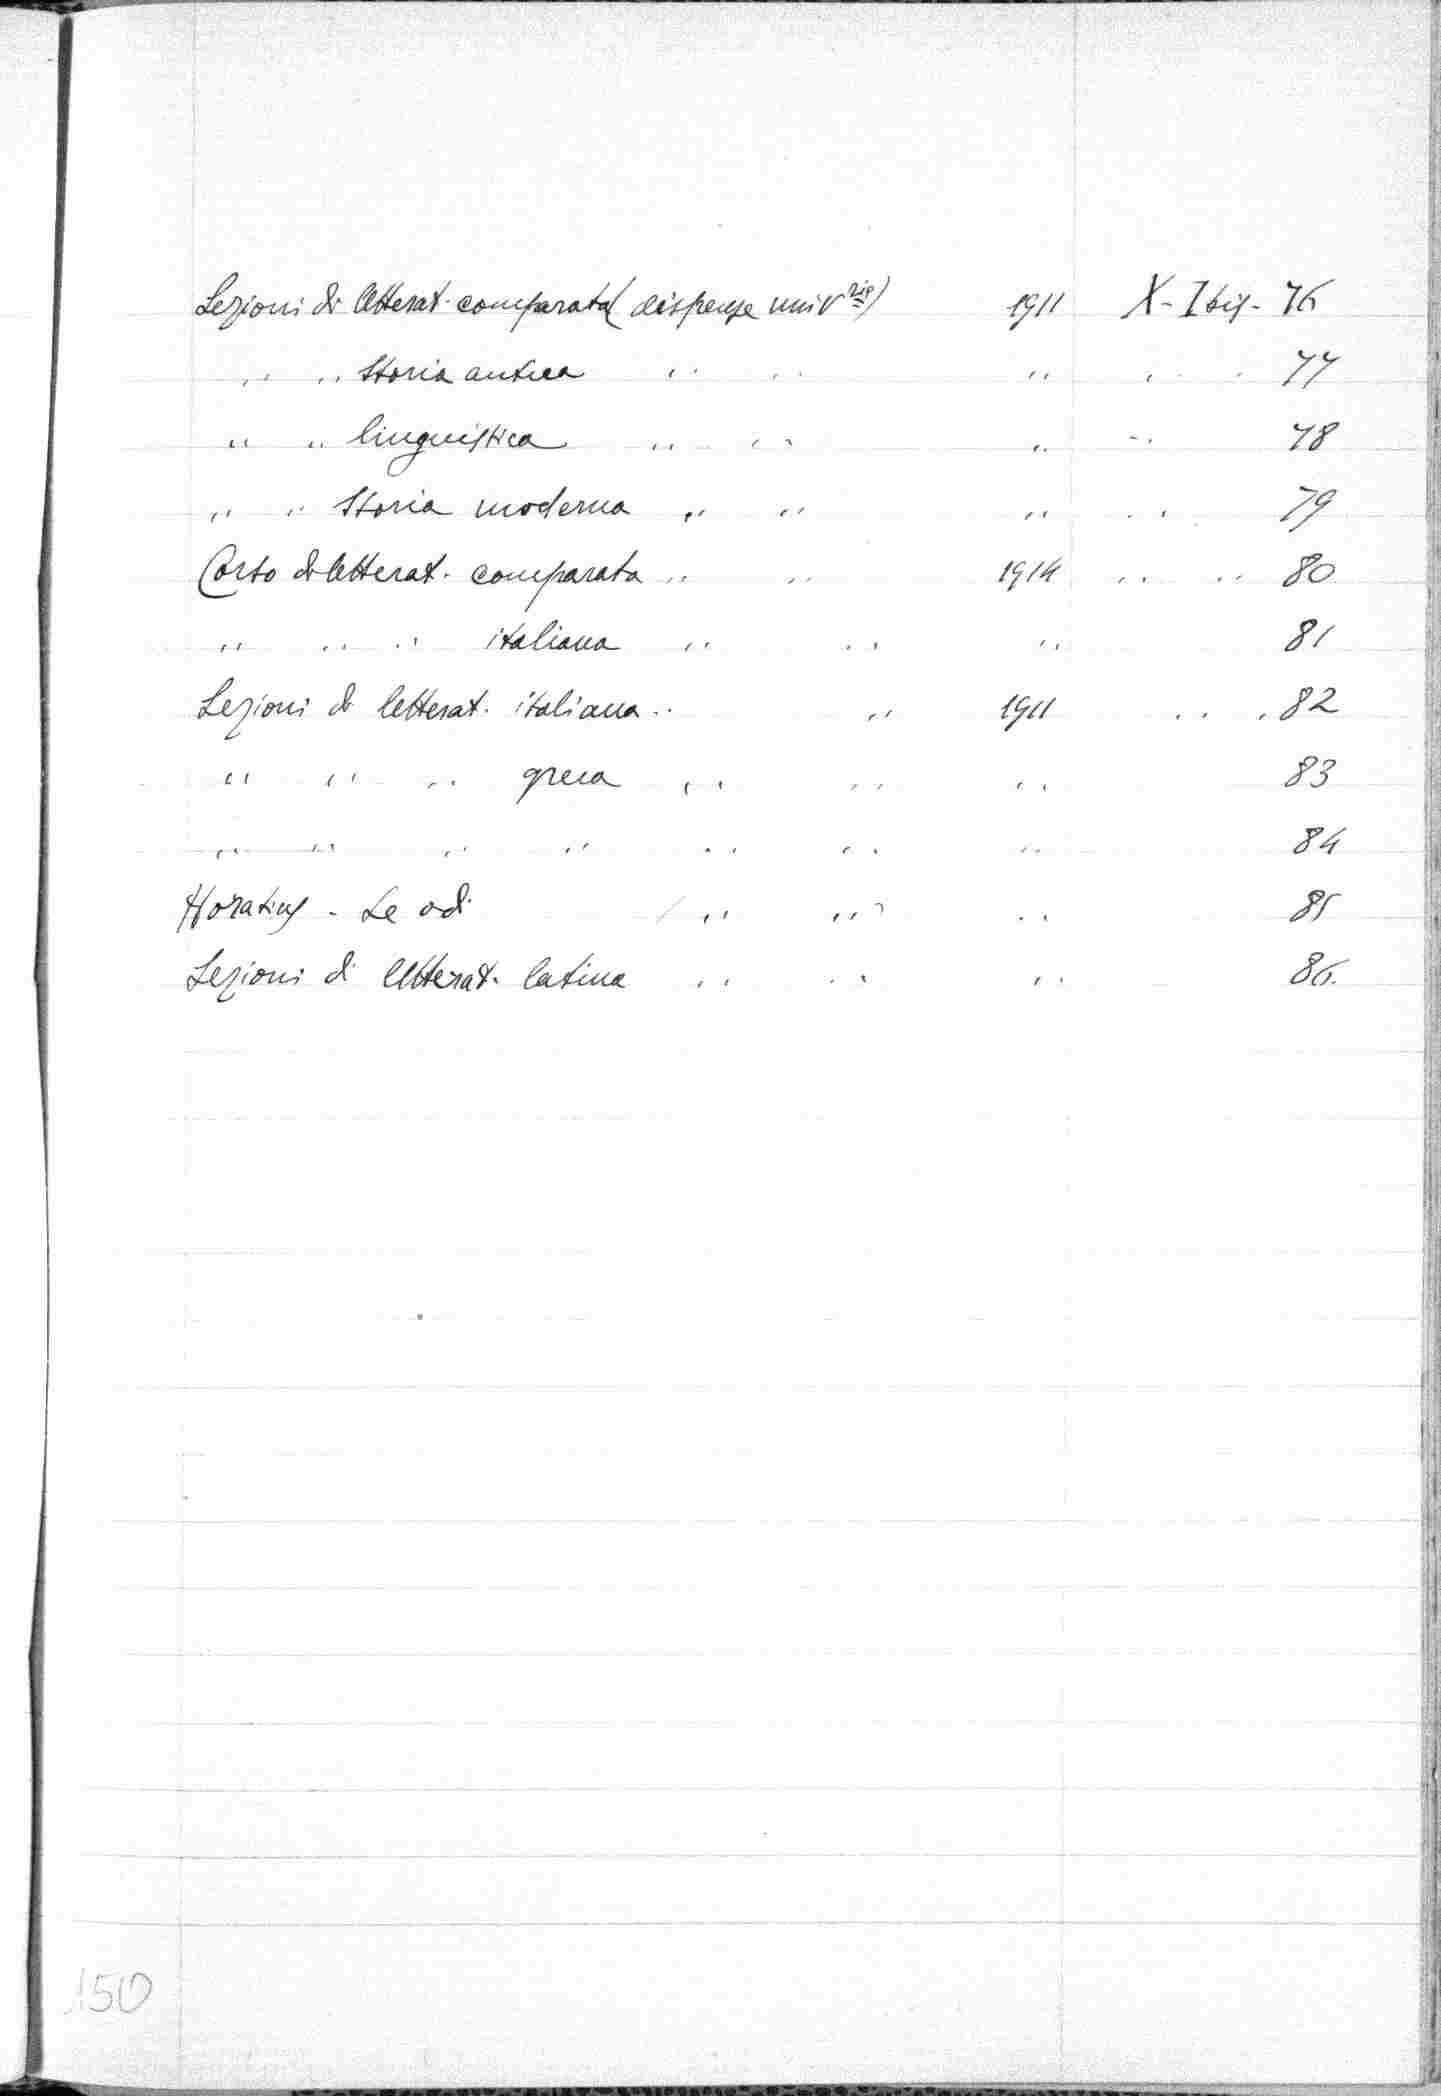 Lezioni di letterat. comparata (dispense univ.rie) 1911 X - I bis - 76
" " Storia antica " " " " " 77
" " linguistica " " " " 78
" " Storia moderna " " " " " 79
Corso di letterat. comparata " " 1914 " " 80
" " " italiana " " " 81
Lezioni di letterat. italiana " " 1911 " " 82
" " " greca " " " 83
" " " " " " " 84
Horatius - Le odi ( " " ) " 85
Lezioni di letterat. latina " " " 86.
150